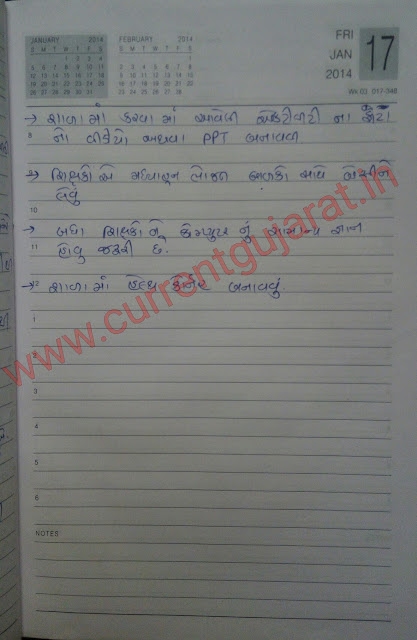 JANUARY 2014
S M T W T F S
1 2 3 4
5 6 7 8 9 10 11
12 13 14 15 16 17 18
19 20 21 22 23 24 25
26 27 28 29 30 31
FEBRUARY 2014
S M T W T F S
1
2 3 4 5 6 7 8
9 10 11 12 13 14 15
16 17 18 19 20 21 22
23 24 25 26 27 28
FRI
JAN
2014
17
Wk 03 017-348
→ શાળા માં કરવા માં આવેલી એક્ટીવીટી ના ફોટા
8 નો વીડીયો અથવા PPT બનાવવી
→ શિક્ષકો એ મધ્યાહન ભોજન બાળકો સાથે બેસીને
લેવું
10
→ બધા શિક્ષકો ને કોમ્પ્યુટર નું સામાન્ય જ્ઞાન
11 હોવુ જરૂરી છે.
→ શાળા માં હેલ્થ કોર્નર બનાવવું.
1
2
3
4
5
6
NOTES
www.currentgujarat.in